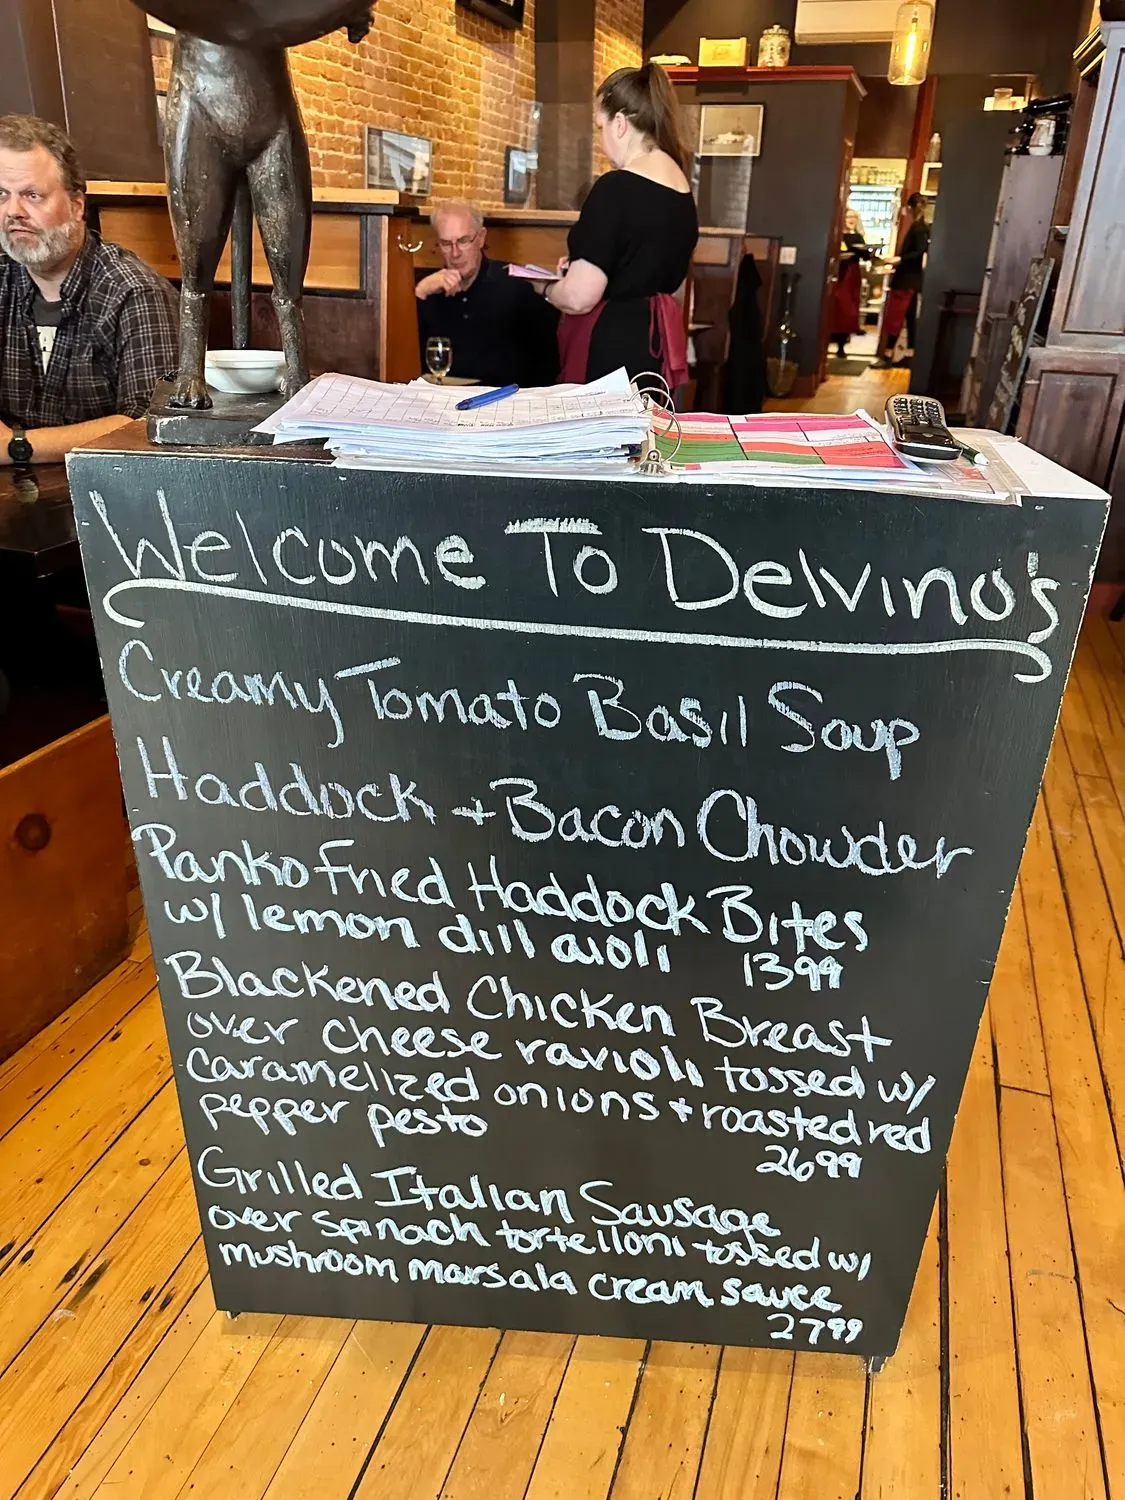 Welcome To Delvino's
Creamy Tomato Basil Soup
Haddock + Bacon Chowder
Panko Fried Haddock Bites
w/ lemon dill aioli 1399
Blackened Chicken Breast
over cheese ravioli tossed w/
caramelized onions + roasted red
pepper pesto
2699
Grilled Italian Sausage
over spinach tortelloni tossed w/
mushroom marsala cream sauce
2799